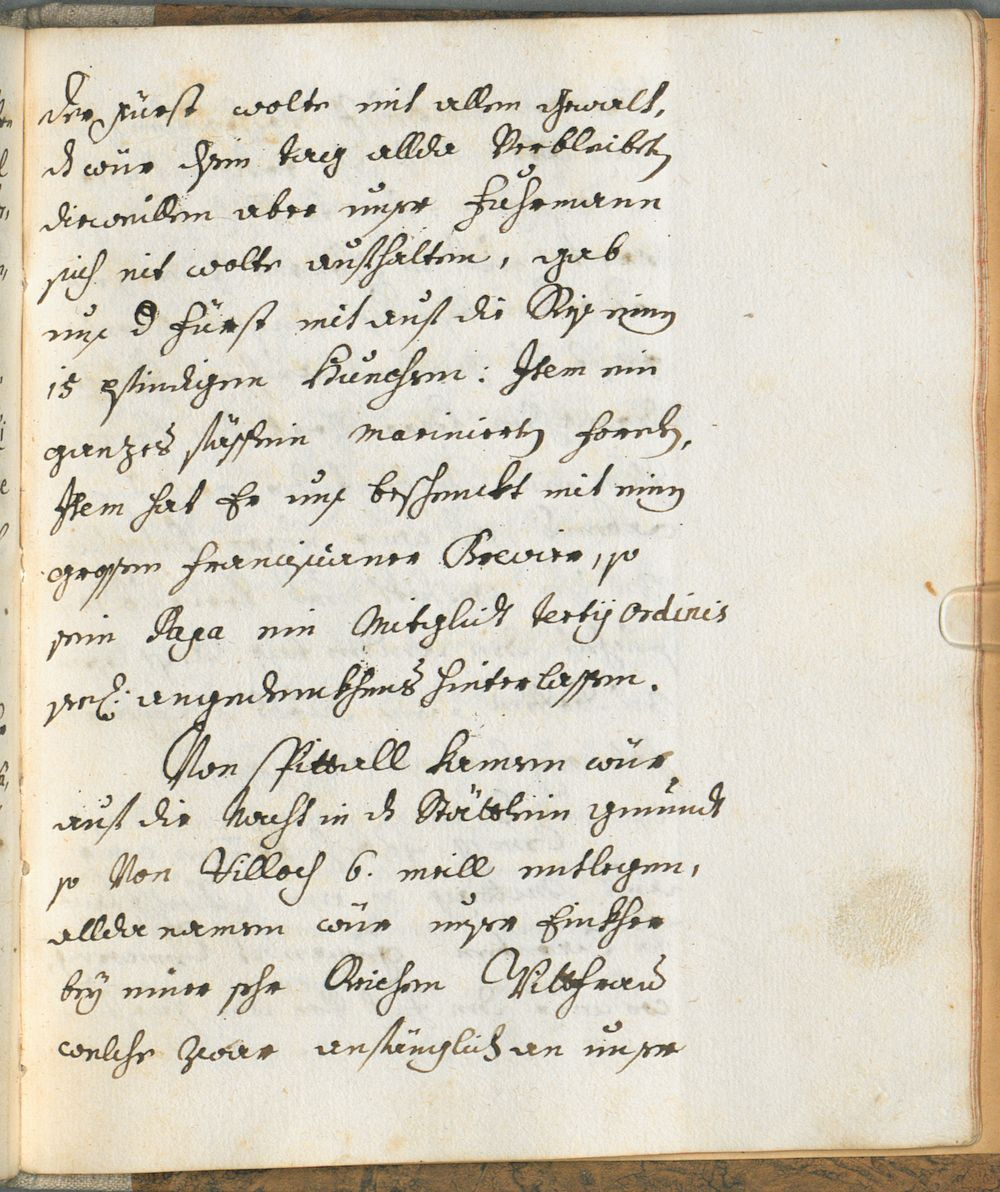 der Fürst wolte mit allem gewalt,
dz wür ein tag allda Verbleiben
dieweillen aber unser Fuhrmann
sich nit wolte aufhalten, gab
unß d Fürst mit auf die Reiß einen
15 pfindigen Huechen: Item ein
ganzes fässlein marinierte foreln,
Item hat Er unß beschenckt mit einen
grossen Franciscaner Brevier, so
sein Papa ein Mitglidt tertij ordinis
seel: angedenckhens hinterlassen.
Von Spittall kamen wür
auf die Nacht in dz Stättlein gmündt
so Von Villach 6. meill entlegen,
allda namen wür unser Einkher
bey einer sehr Reichen Wittfrau
welche zwar anfänglich an unser